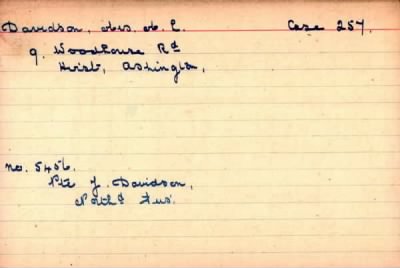 Davidson, Mrs. M. E. Case 257.
9. Woodhouse Rd
Hirst, Ashington,
No. 5456.
Pte J. Davidson,
North'd Fus.